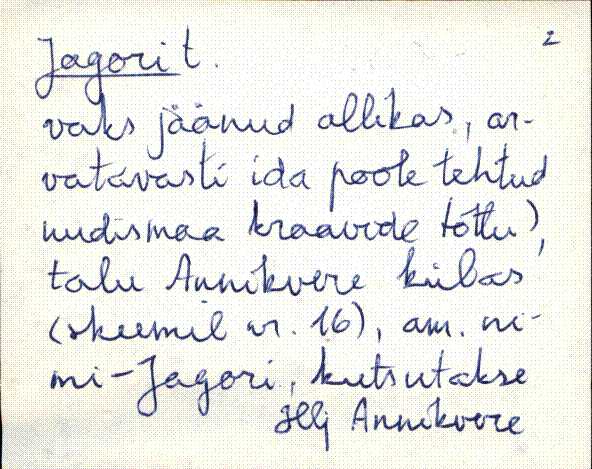 2
Jagori t.
vaks jäänud allikas, ar-
vatavasti ida poole tehtud
uudismaa kraavide tõttu),
talu Annikvere külas
(skeemil nr. 16), am. ni-
mi - Jagori, kutsutakse
Hlj Annikvere